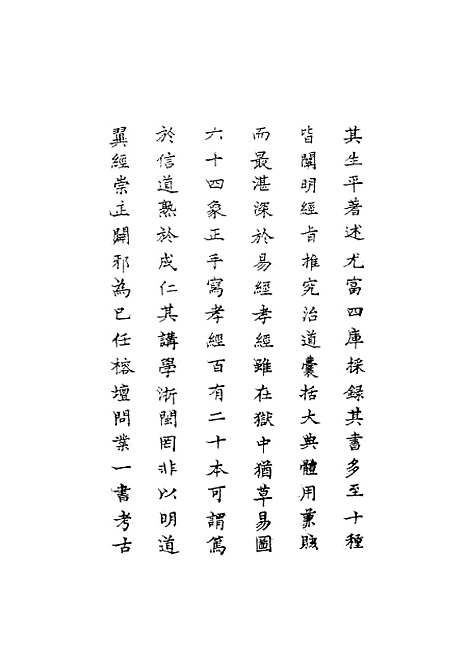 其生平著述尤富四庫採録其書多至十種
皆闡明經旨推究治道囊括大典體用兼賅
而最湛深於易經孝經雖在獄中猶草易圖
六十四象正手寫孝經百有二十本可謂篤
於信道熟於成仁其講學浙閩罔非以明道
翼經崇正闢邪為已任榕壇問業一書考古